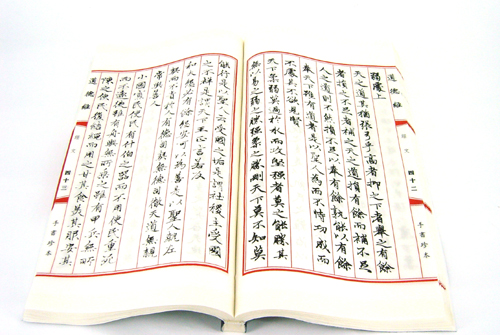 道德經
四十二
手書珍本
弱處上
天之道其猶張弓乎高者抑之下者舉之有餘
者損之不足者補之天之道損有餘而補不足
人之道則不然損不足以奉有餘孰能以有餘
奉天下唯有道者是以聖人為而不恃功成而
不處其不欲見賢
天下柔弱莫過於水而攻堅強者莫之能勝其
無以易之弱之勝強柔之勝剛天下莫不知莫
能行是以聖人云受國之垢是謂社稷主受國
之不祥是謂天下王正言若反
和大怨必有餘怨安可以為善是以聖人執左
契而不責於人有德司契無德司徹天道無親
常與善人
小國寡民使有什伯之器而不用使民重死
而不遠徙雖有舟輿無所乘之雖有甲兵無所
陳之使民復結繩而用之甘其食美其服安其
道德經
四十三
手書珍本